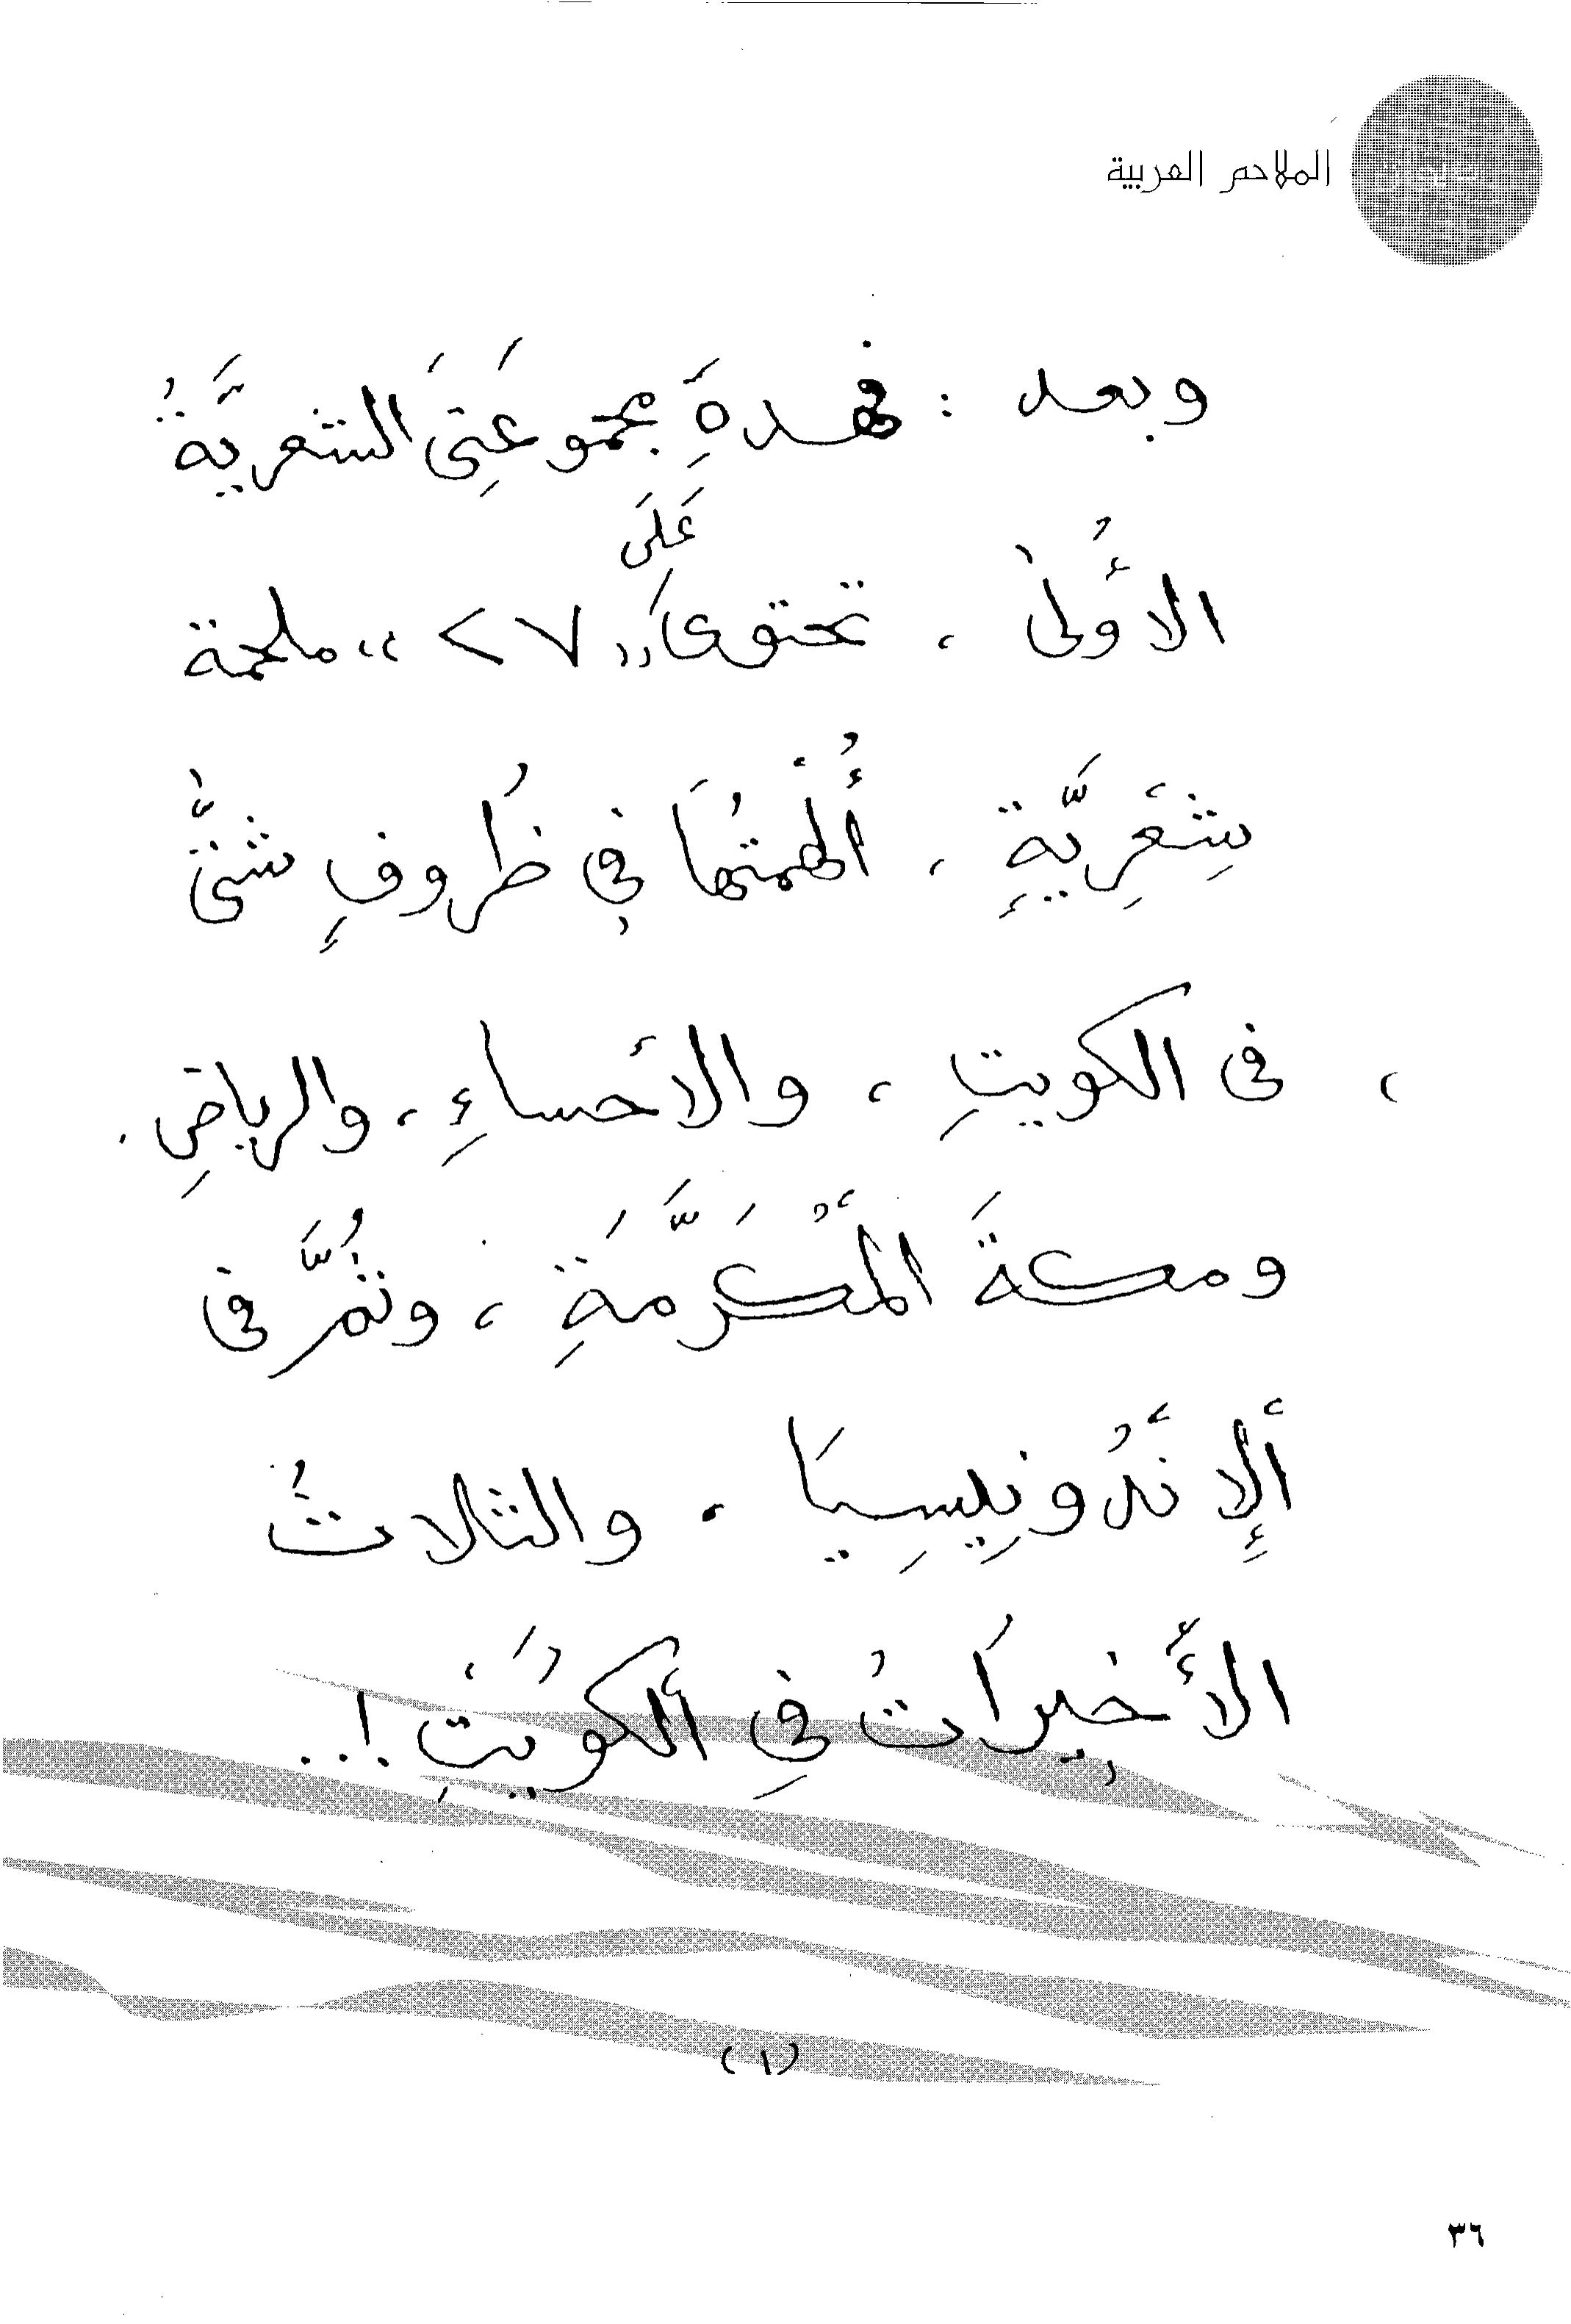 الملاحم العربية
وبعد : فهذهِ مجموعَتِيَ الشعريَّةُ
الأُولىٰ ، تحتوى عَلَى «٢٧» ملحمة
شِعْرِيَّةٍ ، أُلْهِمْتُهَا فِي ظُروفٍ شتىّٰ
، في الكويتِ ، والأحساءِ ، والرياضِ .
ومكةَ المُكَرَّمَةِ ، وثُمَّ في
ألإِنْدُونِيسِيَا ، والثلاثُ
الأَّخِيرَاتُ فِي ألكُوَيْتِ !..
(١)
٣٦